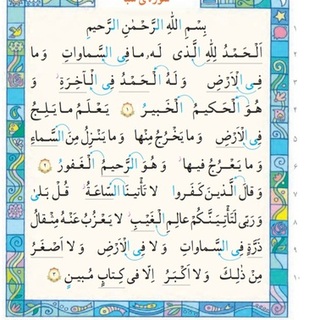 بِسْمِ اللّٰهِ الرَّحْمٰنِ الرَّحیمِ
اَلْحَمْدُ لِلّٰهِ الَّذی لَهُ ما فِی السَّماواتِ وَ ما
فِی الْاَرْضِ وَ لَهُ الْحَمْدُ فِی الْآخِرَةِ وَ
هُوَ الْحَکیمُ الْخَبیرُ ۱ یَعْلَمُ ما یَلِجُ
فِی الْاَرْضِ وَ ما یَخْرُجُ مِنْها وَ ما یَنْزِلُ مِنَ السَّماءِ
وَ ما یَعْرُجُ فیها وَ هُوَ الرَّحیمُ الْغَفورُ ۲
وَ قالَ الَّذینَ کَفَروا لا تَأْتینَا السّاعَةُ قُلْ بَلیٰ
وَ رَبّی لَتَأْتِیَنَّکُمْ عالِمِ الْغَیْبِ لا یَعْزُبُ عَنْهُ مِثْقالُ
ذَرَّةٍ فِی السَّماواتِ وَ لا فِی الْاَرْضِ وَ لا اَصْغَرُ
مِنْ ذٰلِکَ وَ لا اَکْبَرُ اِلّا فی کِتابٍ مُبینٍ ۳